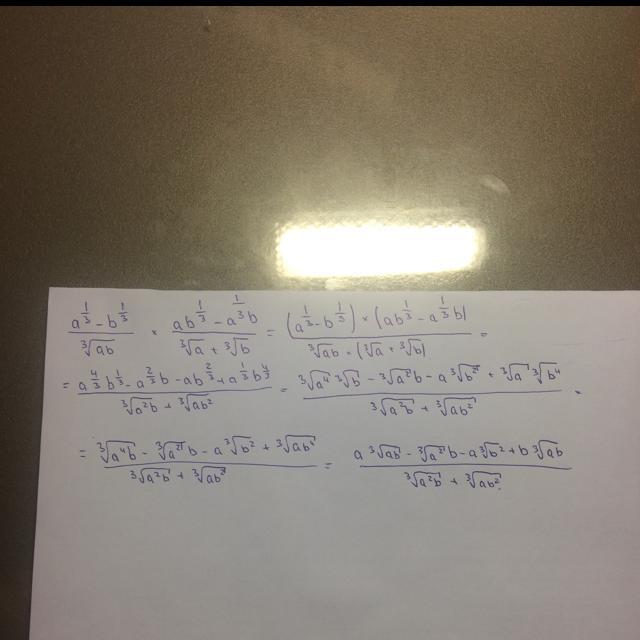 \frac{a^{\frac{1}{3}} - b^{\frac{1}{3}}}{\sqrt[3]{ab}} \times \frac{ab^{\frac{1}{3}} - a^{\frac{1}{3}}b}{\sqrt[3]{a} + \sqrt[3]{b}} = \frac{(a^{\frac{1}{3}} - b^{\frac{1}{3}}) \times (ab^{\frac{1}{3}} - a^{\frac{1}{3}}b)}{\sqrt[3]{ab} \times (\sqrt[3]{a} + \sqrt[3]{b})} =
= \frac{a^{\frac{4}{3}}b^{\frac{1}{3}} - a^{\frac{2}{3}}b - ab^{\frac{2}{3}} + a^{\frac{1}{3}}b^{\frac{4}{3}}}{\sqrt[3]{a^2b} + \sqrt[3]{ab^2}} = \frac{\sqrt[3]{a^4}\sqrt[3]{b} - \sqrt[3]{a^2}b - a\sqrt[3]{b^2} + \sqrt[3]{a}\sqrt[3]{b^4}}{\sqrt[3]{a^2b} + \sqrt[3]{ab^2}} =
= \frac{\sqrt[3]{a^4b} - \sqrt[3]{a^2}b - a\sqrt[3]{b^2} + \sqrt[3]{ab^4}}{\sqrt[3]{a^2b} + \sqrt[3]{ab^2}} = \frac{a\sqrt[3]{ab} - \sqrt[3]{a^2}b - a\sqrt[3]{b^2} + b\sqrt[3]{ab}}{\sqrt[3]{a^2b} + \sqrt[3]{ab^2}}